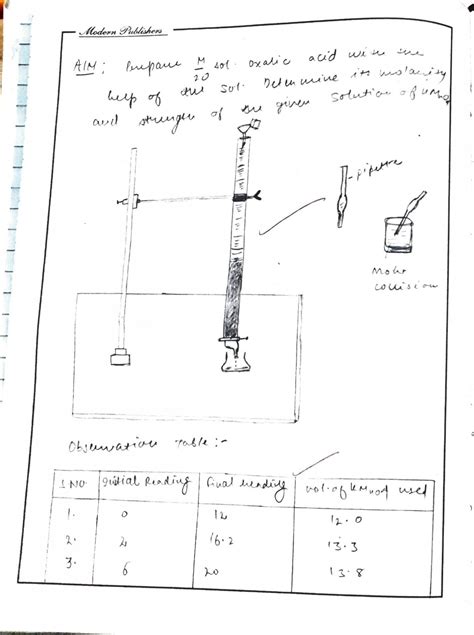 Modern Publishers
AIM: Prepare M/20 sol. oxalic acid with the
help of the sol. Determine its molarity
and strength of the given solution of KMnO4
pipette
Mohr
Observation Table:-
S.NO Initial Reading Final reading vol. of KMnO4 used
1. 0 12 12.0
2. 2 16.2 13.3
3. 6 20 13.8